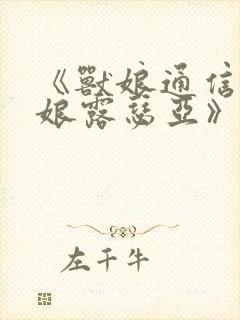 《獸娘通信
娘露瑟亞》
左千牛